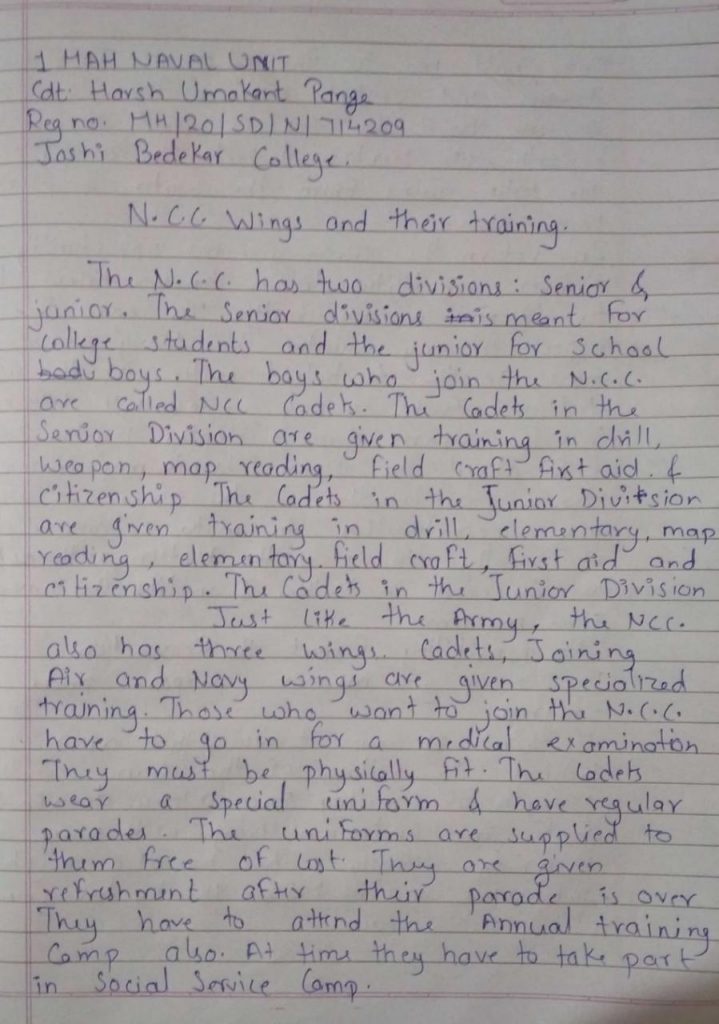 1 MAH NAVAL UNIT
Cdt. Harsh Umakant Pange
Reg no. MH/20/SD/N/714209
Joshi Bedekar College.
N.C.C. Wings and their training.
The N.C.C. has two divisions: Senior &
junior. The Senior divisions is meant for
college students and the junior for school
boys. The boys who join the N.C.C.
are called NCC Cadets. The Cadets in the
Senior Division are given training in drill,
weapon, map reading, field craft first aid. &
citizenship The Cadets in the Junior Division
are given training in drill, elementary, map
reading, elementary. field craft, first aid and
citizenship. The Cadets in the Junior Division
Just like the Army, the NCC.
also has three wings. Cadets, Joining
Air and Navy wings are given specialized
training. Those who want to join the N.C.C.
have to go in for a medical examination
They must be physically fit. The Cadets
wear a special uniform & have regular
parades. The uniforms are supplied to
them free of cost. They are given
refreshment after their parade is over
They have to attend the Annual training
Camp also. At time they have to take part
in Social Service Camp.